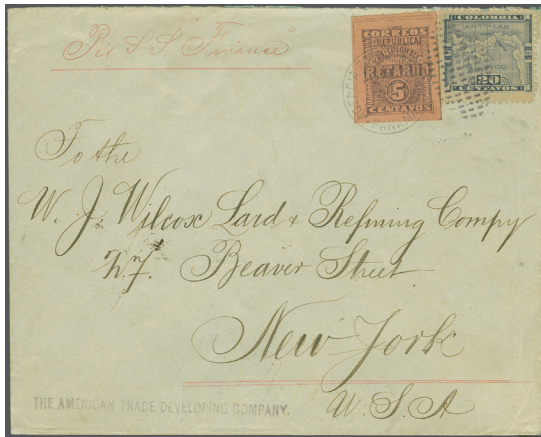 Per S.S. Finance
CORREOS
REPUBLICA
DE COLOMBIA
RETARDO
5
CENTAVOS
COLOMBIA
ANTILLAS
20
CENTAVOS
PANAMA
To the
W. J. Wilcox Lard & Refining Compy
27. Beaver Street
New-York
U.S.A
THE AMERICAN TRADE DEVELOPING COMPANY.